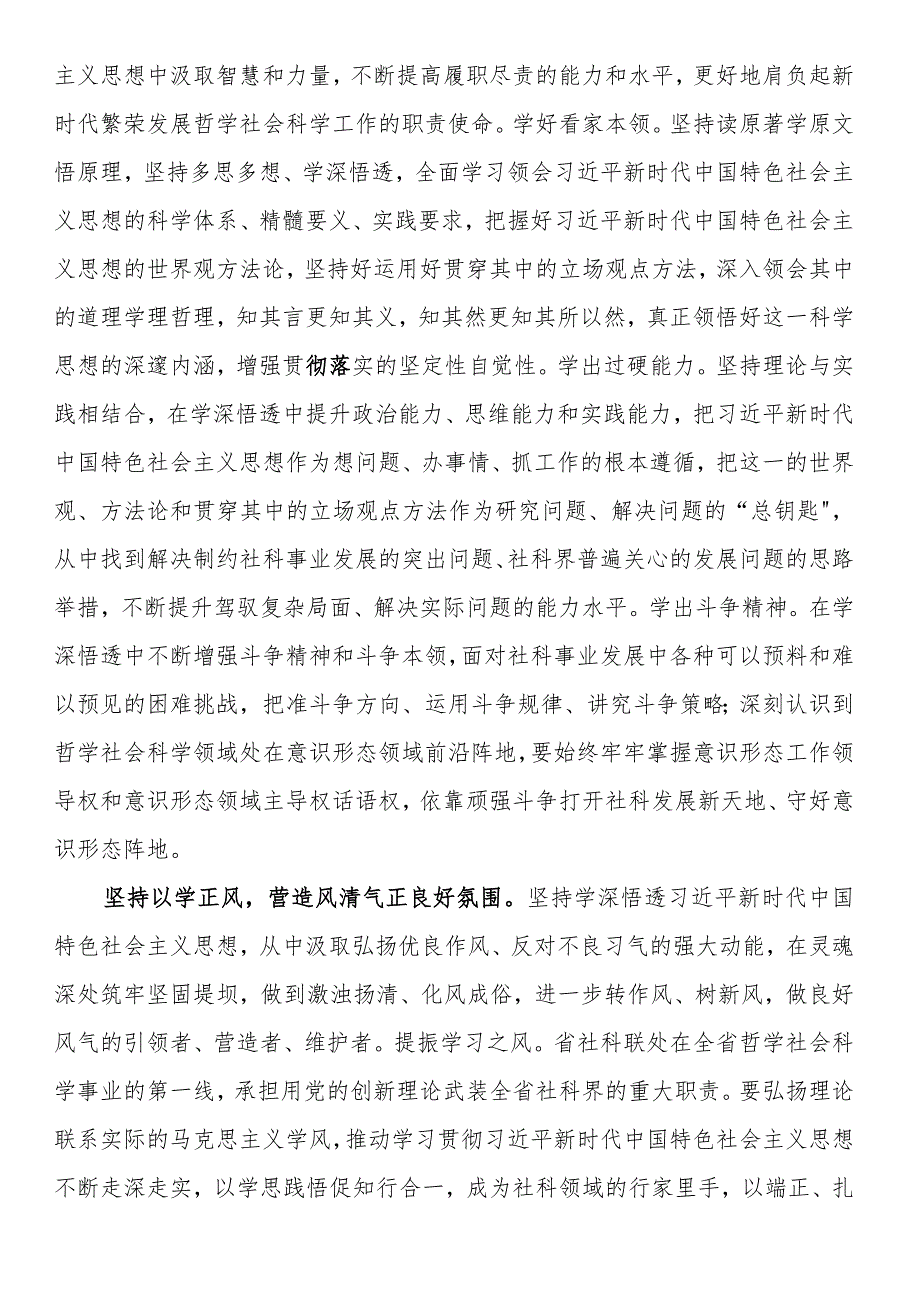 主义思想中汲取智慧和力量，不断提高履职尽责的能力和水平，更好地肩负起新
时代繁荣发展哲学社会科学工作的职责使命。学好看家本领。坚持读原著学原文
悟原理，坚持多思多想、学深悟透，全面学习领会习近平新时代中国特色社会主
义思想的科学体系、精髓要义、实践要求，把握好习近平新时代中国特色社会主
义思想的世界观方法论，坚持好运用好贯穿其中的立场观点方法，深入领会其中
的道理学理哲理，知其言更知其义，知其然更知其所以然，真正领悟好这一科学
思想的深邃内涵，增强贯彻落实的坚定性自觉性。学出过硬能力。坚持理论与实
践相结合，在学深悟透中提升政治能力、思维能力和实践能力，把习近平新时代
中国特色社会主义思想作为想问题、办事情、抓工作的根本遵循，把这一的世界
观、方法论和贯穿其中的立场观点方法作为研究问题、解决问题的“总钥匙"，
从中找到解决制约社科事业发展的突出问题、社科界普遍关心的发展问题的思路
举措，不断提升驾驭复杂局面、解决实际问题的能力水平。学出斗争精神。在学
深悟透中不断增强斗争精神和斗争本领，面对社科事业发展中各种可以预料和难
以预见的困难挑战，把准斗争方向、运用斗争规律、讲究斗争策略；深刻认识到
哲学社会科学领域处在意识形态领域前沿阵地，要始终牢牢掌握意识形态工作领
导权和意识形态领域主导权话语权，依靠顽强斗争打开社科发展新天地、守好意
识形态阵地。
坚持以学正风，营造风清气正良好氛围。坚持学深悟透习近平新时代中国
特色社会主义思想，从中汲取弘扬优良作风、反对不良习气的强大动能，在灵魂
深处筑牢坚固堤坝，做到激浊扬清、化风成俗，进一步转作风、树新风，做良好
风气的引领者、营造者、维护者。提振学习之风。省社科联处在全省哲学社会科
学事业的第一线，承担用党的创新理论武装全省社科界的重大职责。要弘扬理论
联系实际的马克思主义学风，推动学习贯彻习近平新时代中国特色社会主义思想
不断走深走实，以学思践悟促知行合一，成为社科领域的行家里手，以端正、扎